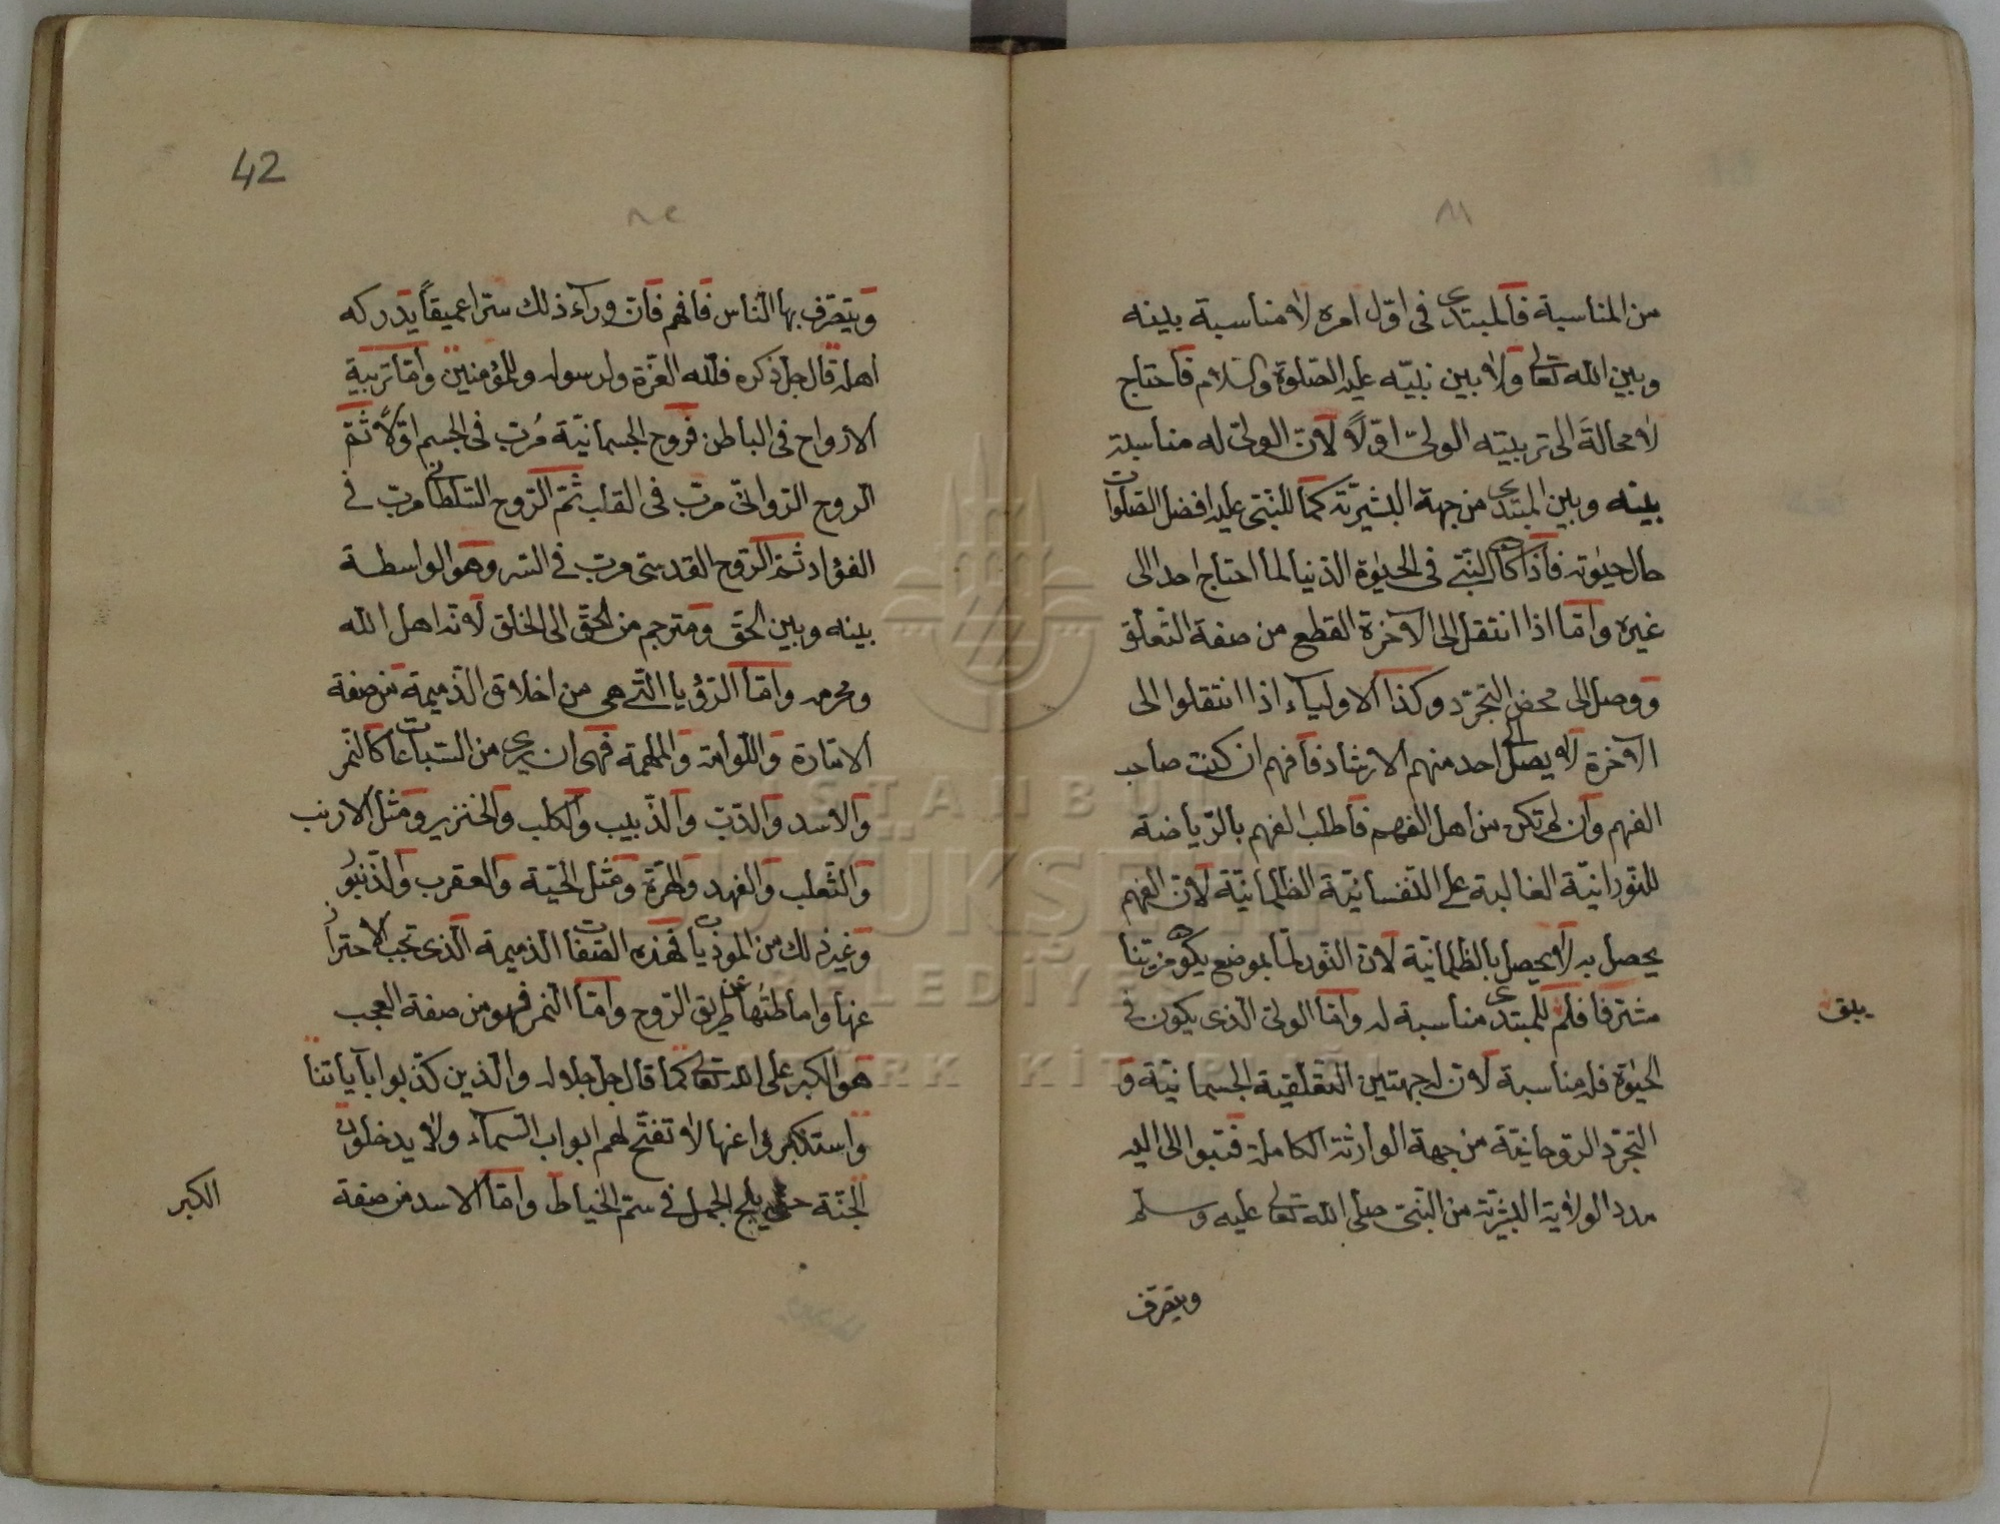 ٨١
من المناسبة فالمبتدى فى اوّل امره لا مناسبة بينه
وبين الله تعالى ولا بين نبيّه عليه الصّلوة والسّلام فاحتاج
لا محالة الى تربيته الولى اوّلاً لانّ الولىّ له مناسبة
بينه وبين المبتدى من جهة البشريّة كما للنّبىّ عليه افضل الصّلوات
حال حيوته فاذا كان النّبىّ فى الحيوة الدّنيا لما احتاج احد الى
غيره وامّا اذا انتقل الى الآخرة انقطع من صفة التّعلّق
ووصل الى محض التّجرّد وكذا الاولياء اذا انتقلوا الى
الآخرة لا يصل الى احد منهم الارشاد فافهم ان كنت صاحب
الفهم وان لم تكن من اهل الفهم فاطلب الفهم بالرّياضة
النّورانيّة الغالبة على النّفسانيّة الظّلمانيّة لانّ الفهم
يحصل به لا يحصل بالظّلمانيّة لانّ النّور لمّا بموضع يكون مزيّنا
مشترفا فلم للمبتدى مناسبة له وامّا الولىّ الّذى يكون فى
يبق
الحيوة فله مناسبة لانّ له جهتين التّعلّقية الجسمانيّة و
التّجرّد الرّوحانيّة من جهة الوارثة الكاملة فتبوالى اليه
مدد الولاية البشريّة من النّبىّ صلّى الله تعالى عليه وسلّم
ويتصرّف
42
٨٢
ويتصرّف بها النّاس فافهم فانّ وراء ذلك سرّا عميقاً يدركه
اهله قال جلّ ذكره فللّه العزّة ولرسوله وللمؤمنين وامّا تربية
الارواح فى الباطن فروح الجسمانيّة مُربّ فى الجسم اوّلاً ثمّ
الرّوح الرّوانىّ مربّ فى القلب ثمّ الرّوح السّلطانى مربّ فى
الفؤاد ثمّ الرّوح القدسىّ مربّ فى السّر وهو الواسطة
بينه وبين الحقّ ومترجم من الحقّ الى الخلق لانّه اهل الله
ومحرمه وامّا الرّؤيا الّتى هى من اخلاق الذّميمة من صفة
الامّارة واللّوامة والملهمة فهى ان يرى من السّباعات كالنّمر
والاسد والدّبّ والذّبيب والكلب والخنزير ومثل الارنب
والثّعلب والفهد والهرّة ومثل الحيّة والعقرب والذّنبُو
وغير ذلك من الموذيات فهذه الصّفات الذّميمة الّذى تجب الاحتراز
عنها وامّاطتُها عن طريق الرّوح وامّا النّمر فهو من صفة العجب
هو الكبر على الله تعالى كما قال جلّ جلاله والّذين كذّبوا بآياتنا
واستكبروا عنها لا تفتّح لهم ابواب السّماء ولا يدخلون
الجنّة حتّى يلج الجمل فى سمّ الخياط وامّا الاسد من صفة
الكبر